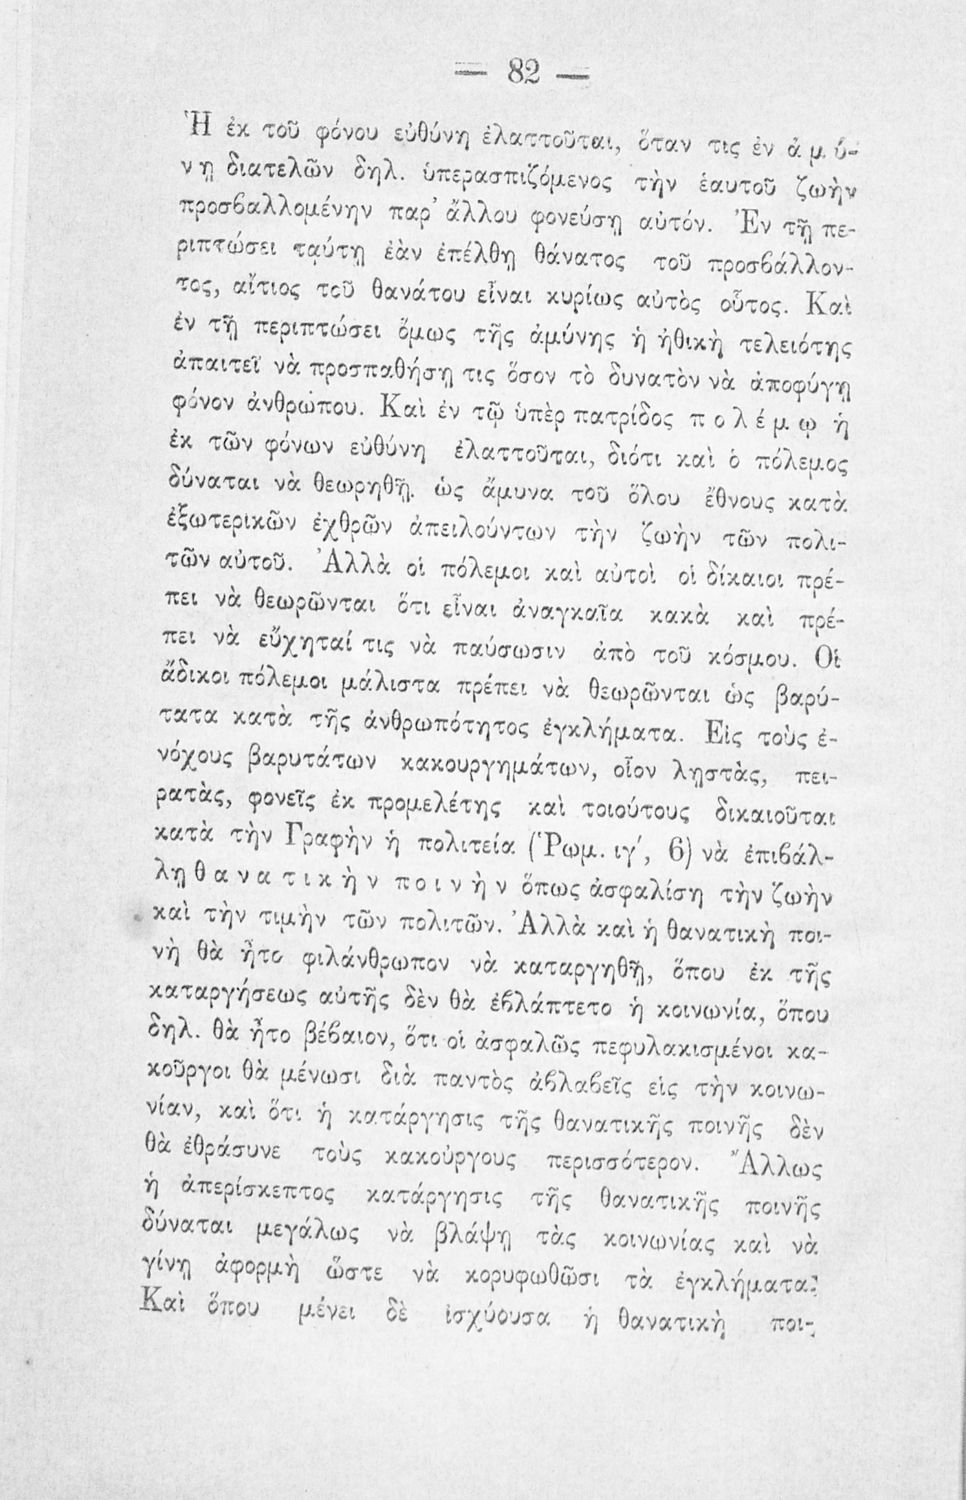 — 82 —
Ἡ ἐκ τοῦ φόνου εὐθύνη ἐλαττοῦται, ὅταν τις ἐν ἀ μ ύ-
ν ῃ διατελῶν δηλ. ὑπερασπιζόμενος τὴν ἑαυτοῦ ζωὴν
προσβαλλομένην παρ' ἄλλου φονεύσῃ αὐτόν. Ἐν τῇ πε-
ριπτώσει ταύτῃ ἐὰν ἐπέλθῃ θάνατος τοῦ προσβάλλον-
τος, αἴτιος τοῦ θανάτου εἶναι κυρίως αὐτὸς οὗτος. Καὶ
ἐν τῇ περιπτώσει ὅμως τῆς ἀμύνης ἡ ἠθικὴ τελειότης
ἀπαιτεῖ νὰ προσπαθήσῃ τις ὅσον τὸ δυνατὸν νὰ ἀποφύγῃ
φόνον ἀνθρώπου. Καὶ ἐν τῷ ὑπὲρ πατρίδος π ο λ έ μ ῳ ἡ
ἐκ τῶν φόνων εὐθύνη ἐλαττοῦται, διότι καὶ ὁ πόλεμος
δύναται νὰ θεωρηθῇ. ὡς ἄμυνα τοῦ ὅλου ἔθνους κατὰ
ἐξωτερικῶν ἐχθρῶν ἀπειλούντων τὴν ζωὴν τῶν πολι-
τῶν αὐτοῦ. Ἀλλὰ οἱ πόλεμοι καὶ αὐτοὶ οἱ δίκαιοι πρέ-
πει νὰ θεωρῶνται ὅτι εἶναι ἀναγκαῖα κακὰ καὶ πρέ-
πει νὰ εὔχηταί τις νὰ παύσωσιν ἀπὸ τοῦ κόσμου. Οἱ
ἄδικοι πόλεμοι μάλιστα πρέπει νὰ θεωρῶνται ὡς βαρύ-
τατα κατὰ τῆς ἀνθρωπότητος ἐγκλήματα. Εἰς τοὺς ἐ-
νόχους βαρυτάτων κακουργημάτων, οἷον λῃστὰς, πει-
ρατὰς, φονεῖς ἐκ προμελέτης καὶ τοιούτους δικαιοῦται
κατὰ τὴν Γραφὴν ἡ πολιτεία (Ῥωμ. ιγ', 6) νὰ ἐπιβάλ-
λῃ θ α ν α τ ι κ ὴ ν π ο ι ν ὴ ν ὅπως ἀσφαλίσῃ τὴν ζωὴν
καὶ τὴν τιμὴν τῶν πολιτῶν. Ἀλλὰ καὶ ἡ θανατικὴ ποι-
νὴ θὰ ἦτο φιλάνθρωπον νὰ καταργηθῇ, ὅπου ἐκ τῆς
καταργήσεως αὐτῆς δὲν θὰ ἐβλάπτετο ἡ κοινωνία, ὅπου
δηλ. θὰ ἦτο βέβαιον, ὅτι οἱ ἀσφαλῶς πεφυλακισμένοι κα-
κοῦργοι θὰ μένωσι διὰ παντὸς ἀβλαβεῖς εἰς τὴν κοινω-
νίαν, καὶ ὅτι ἡ κατάργησις τῆς θανατικῆς ποινῆς δὲν
θὰ ἐθράσυνε τοὺς κακούργους περισσότερον. Ἄλλως
ἡ ἀπερίσκεπτος κατάργησις τῆς θανατικῆς ποινῆς
δύναται μεγάλως νὰ βλάψῃ τὰς κοινωνίας καὶ νὰ
γίνῃ ἀφορμὴ ὥστε νὰ κορυφωθῶσι τὰ ἐγκλήματα.
Καὶ ὅπου μένει δὲ ἰσχύουσα ἡ θανατικὴ ποι-